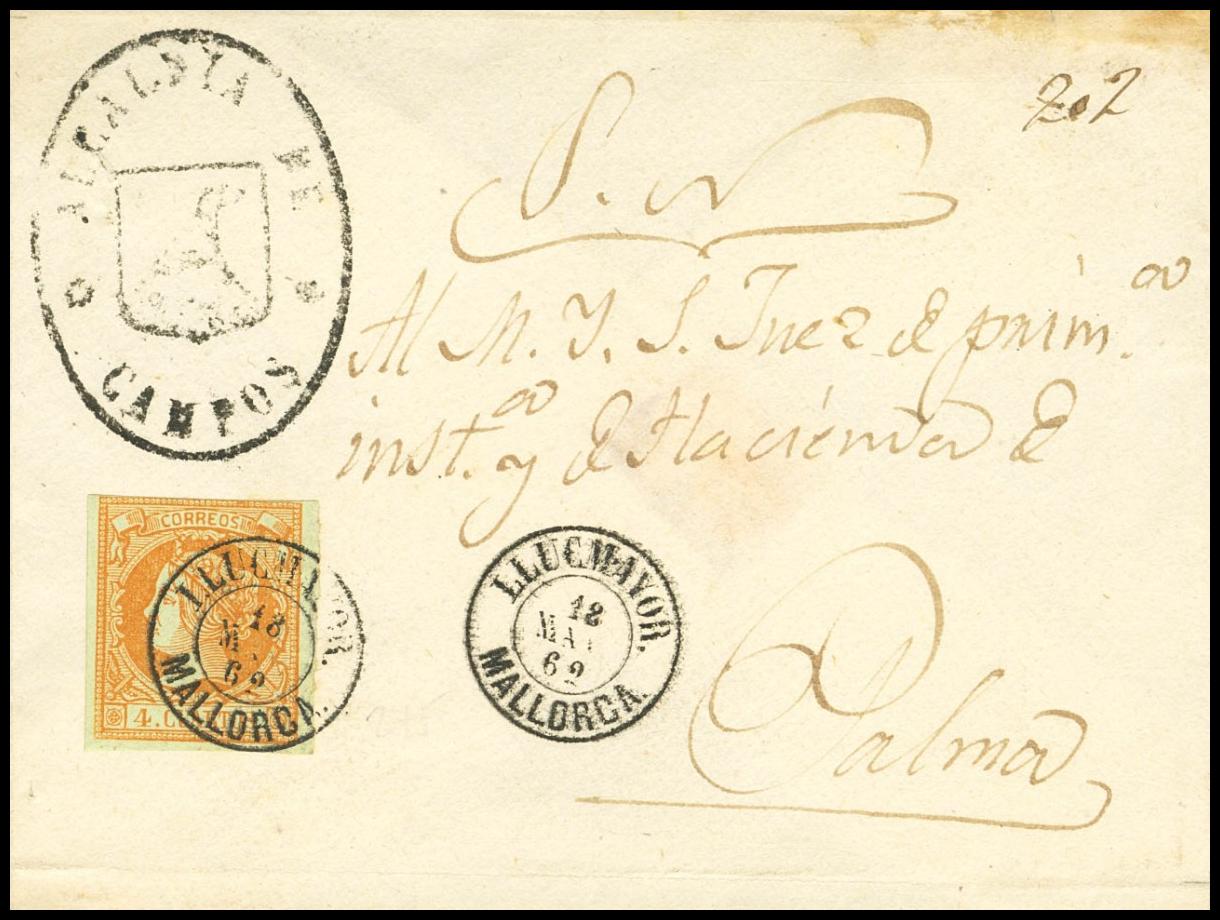 ALCALDYA DE
CAMPOS
202
S. N
Al M. Y. S. Juez de prim.ᵃ
inst.ᵃ y de Hacienda de
Palma
CORREOS
4. C
LLUCMAYOR.
18
62
MALLORCA.
LLUCMAYOR.
18
MAY
62
MALLORCA.